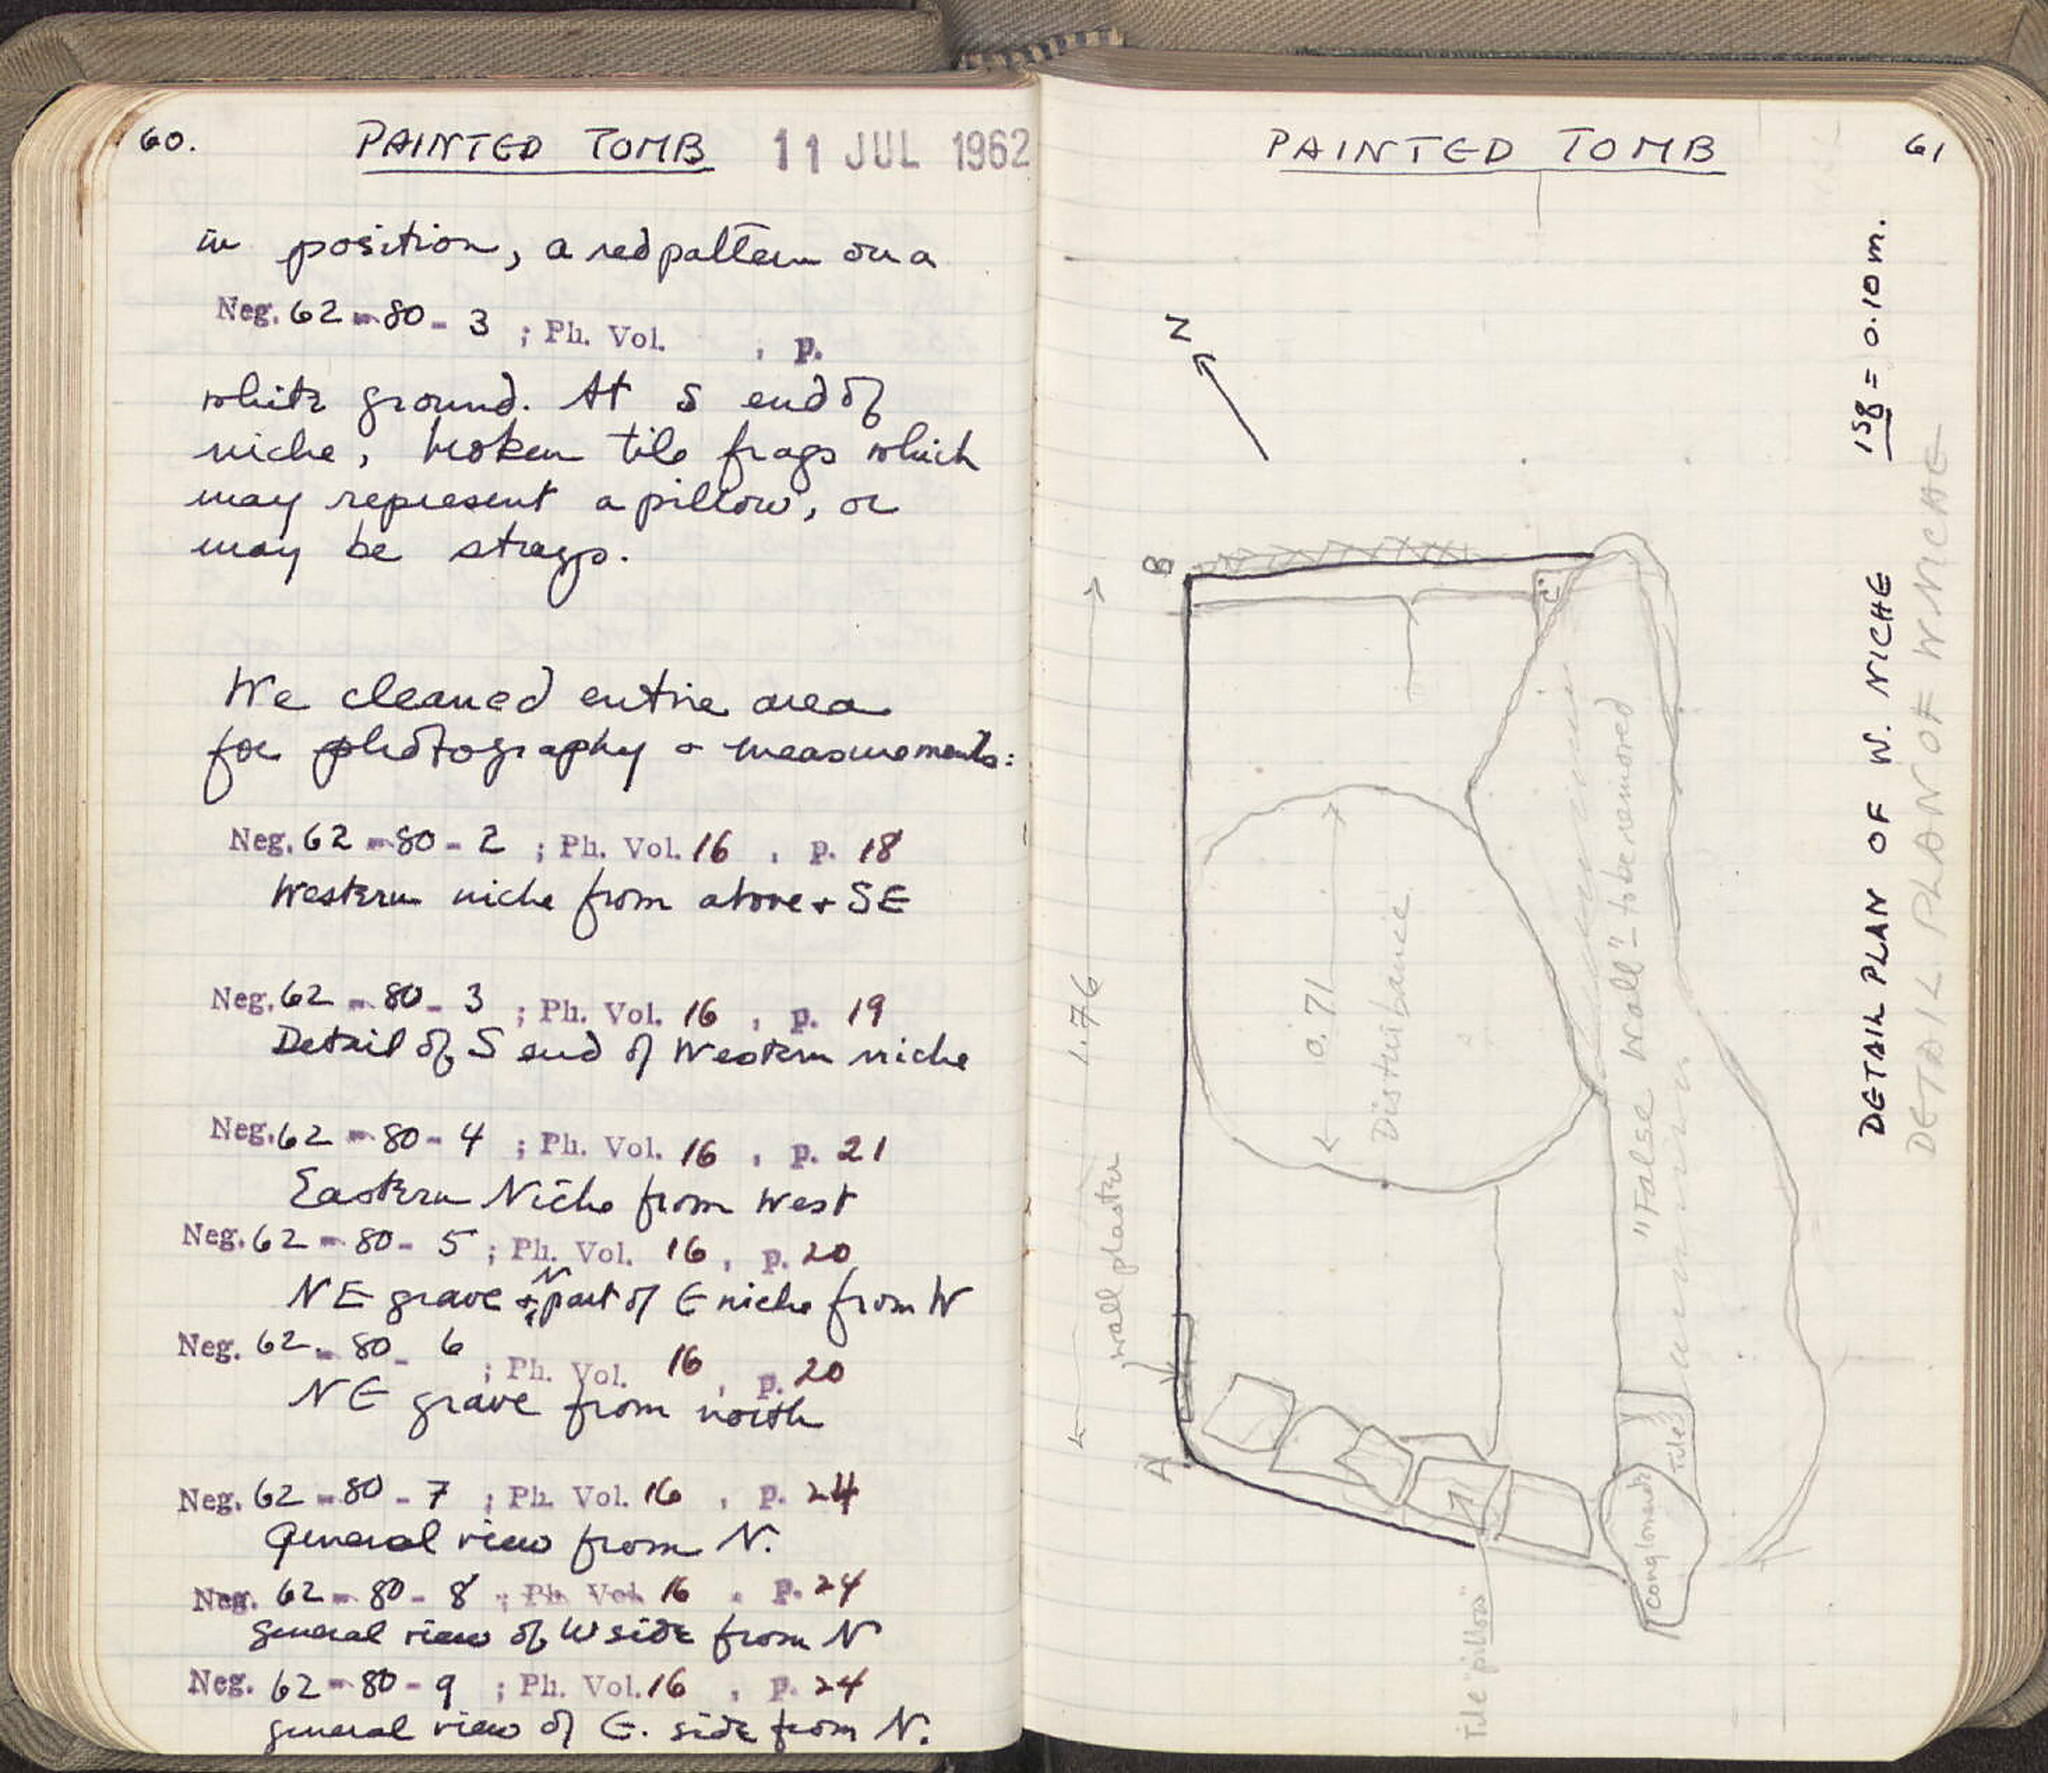 60. PAINTED TOMB 11 JUL 1962
in position, a red pattern on a
Neg. 62-80-3 ; Ph. Vol. , p.
white ground. At S end of
niche, broken tile frags which
may represent a pillow, or
may be strays.
We cleaned entire area
for photography + measurements:
Neg. 62-80-2 ; Ph. Vol. 16 , p. 18
Western niche from above + SE
Neg. 62-80-3 ; Ph. Vol. 16 , p. 19
Detail of S end of Western niche
Neg. 62-80-4 ; Ph. Vol. 16 , p. 21
Eastern Niche from West
Neg. 62-80-5 ; Ph. Vol. 16 , p. 20
NE grave + N part of E niche from W
Neg. 62-80-6 ; Ph. Vol. 16 , p. 20
NE grave from north
Neg. 62-80-7 ; Ph. Vol. 16 , p. 24
General view from N.
Neg. 62-80-8 ; Ph. Vol. 16 , p. 24
general view of W side from N
Neg. 62-80-9 ; Ph. Vol. 16 , p. 24
general view of E. side from N.
PAINTED TOMB 61
N
1 sq = 0.10 m.
DETAIL PLAN OF W. NICHE
DETAIL PLAN OF W. NICHE
B
1.76
wall plaster
0.71
Disturbance
"False Wall" - to be removed
A
Tile
conglomerate
Tile "pillow"